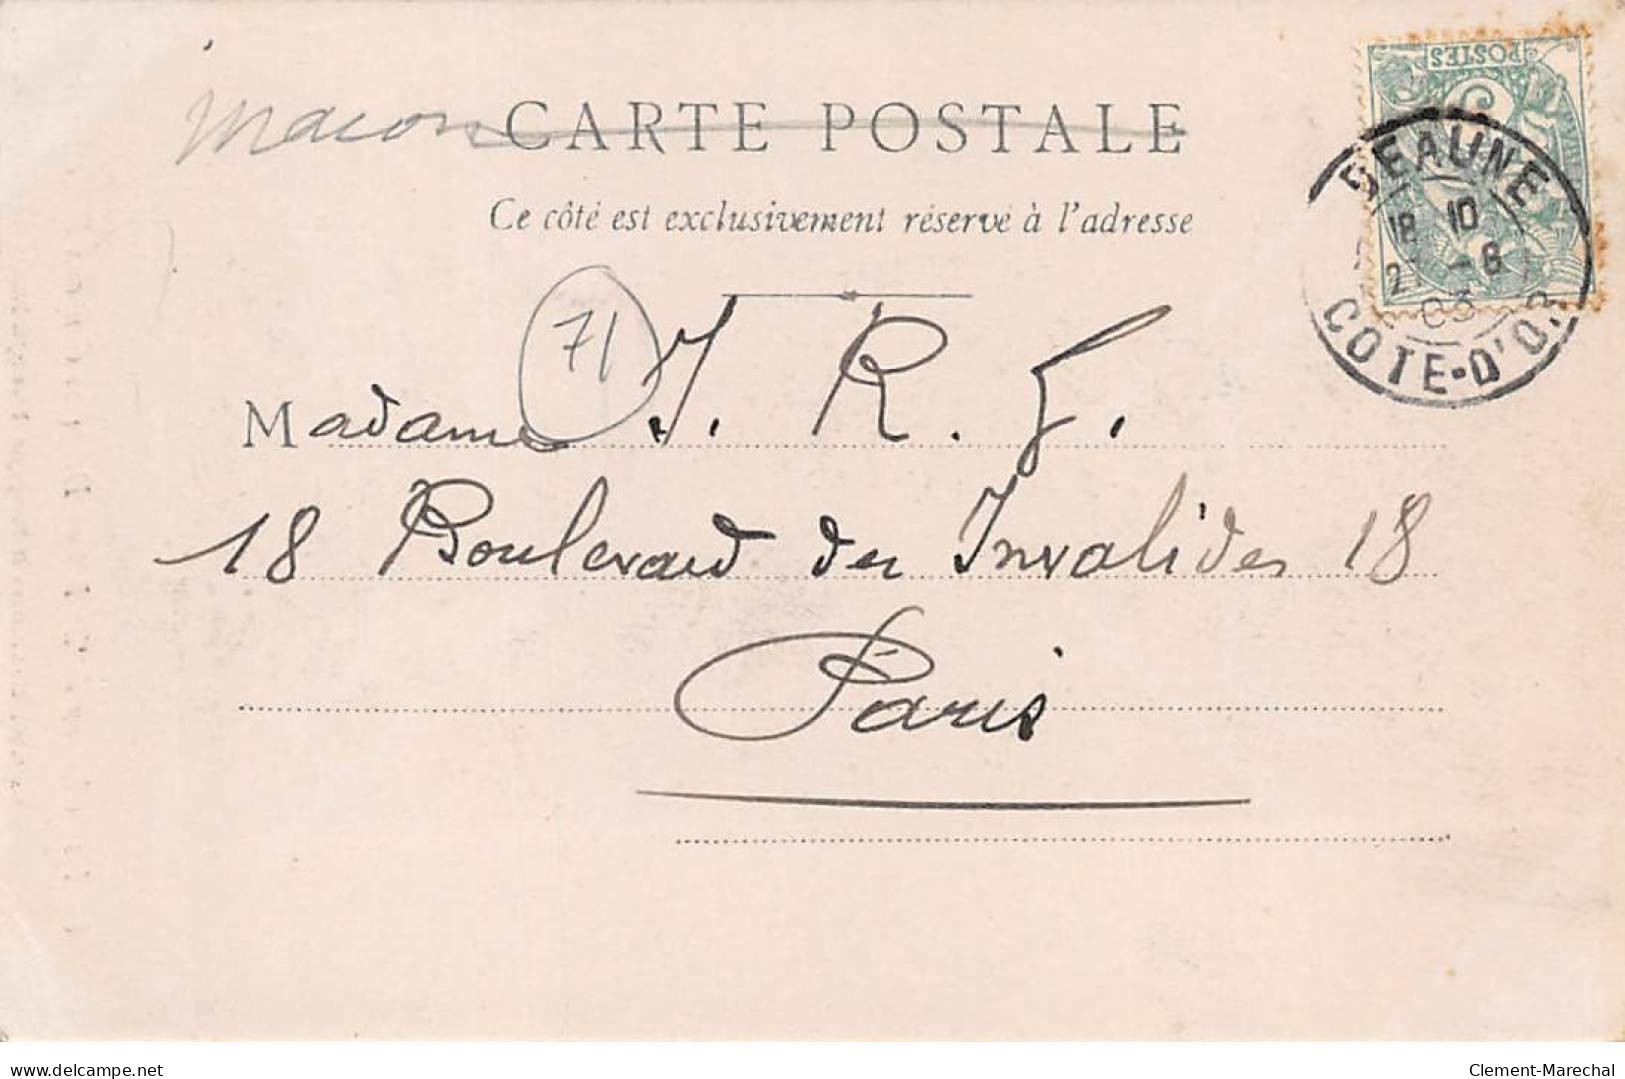 Macon
CARTE POSTALE
Ce côté est exclusivement réservé à l'adresse
POSTES
5
BEAUNE
18 10
-8
03
COTE-D'OR
71
Madame J. R. G.
18 Boulevard des Invalides 18
Paris
www.delcampe.net
Clement-Marechal